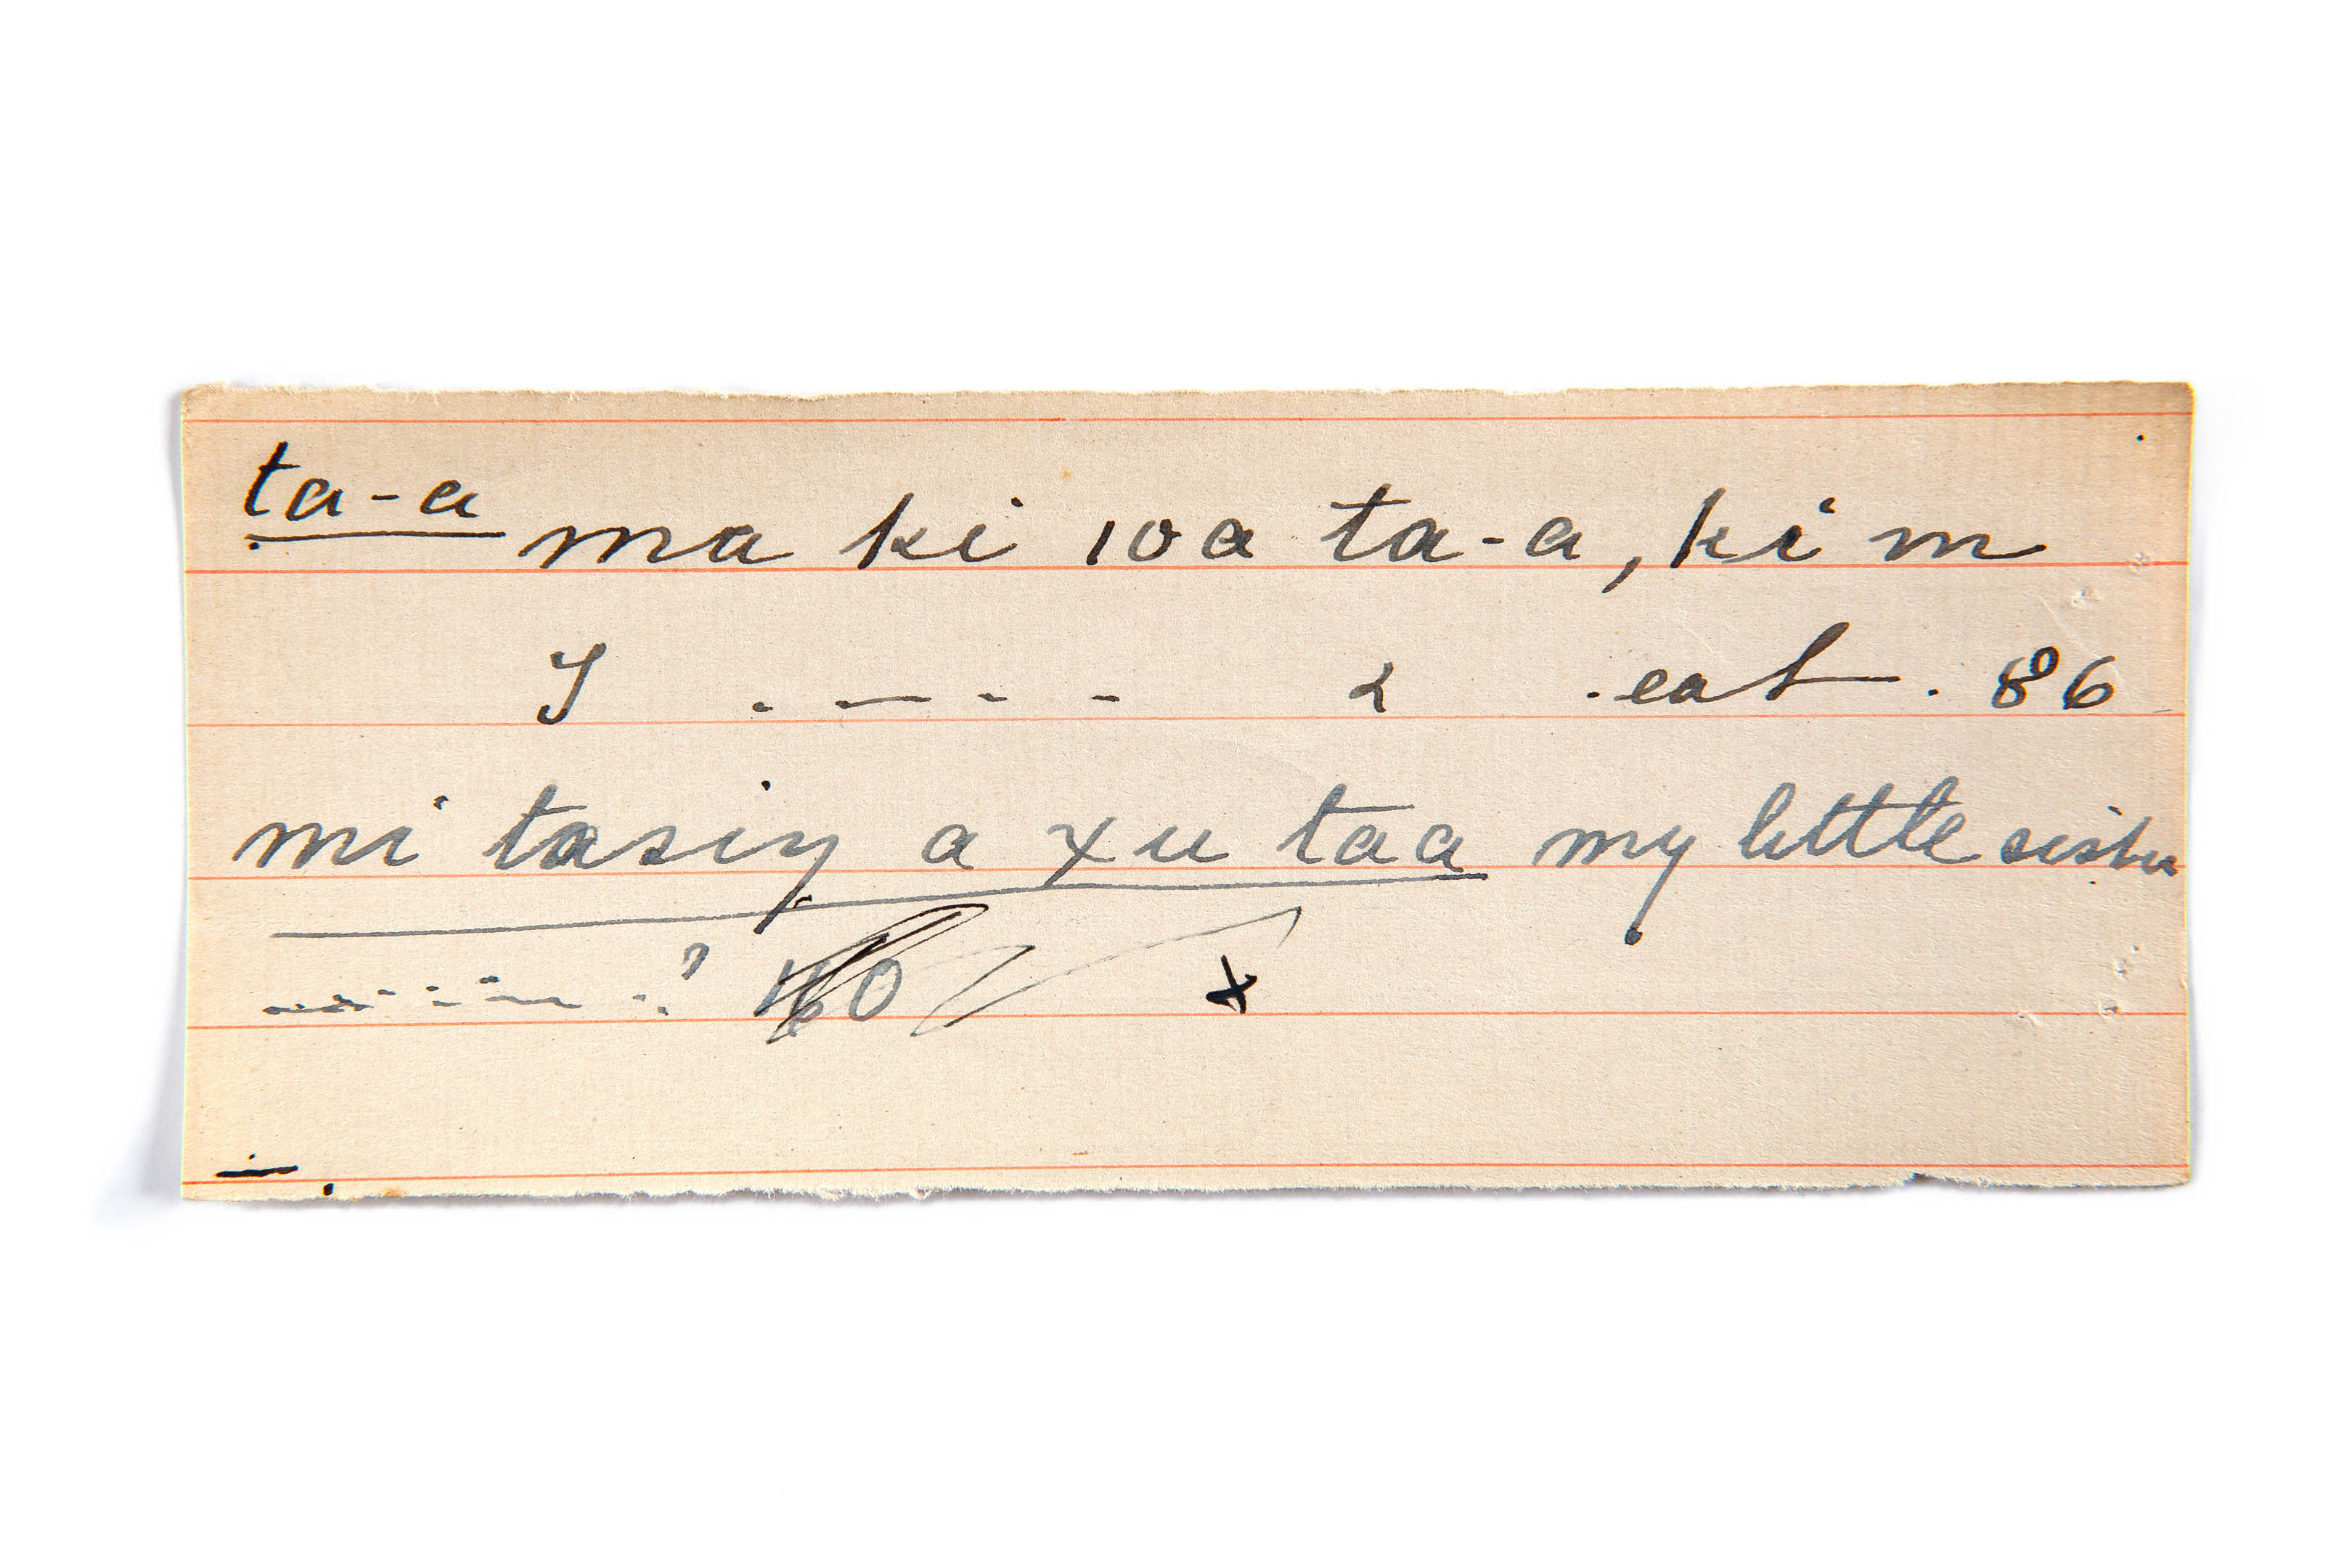 ta-a ma ki 10a ta-a, kim
I . — - - & eat. 86
mi tasiy a xu taa my little sister
--- - - - -? 160 x